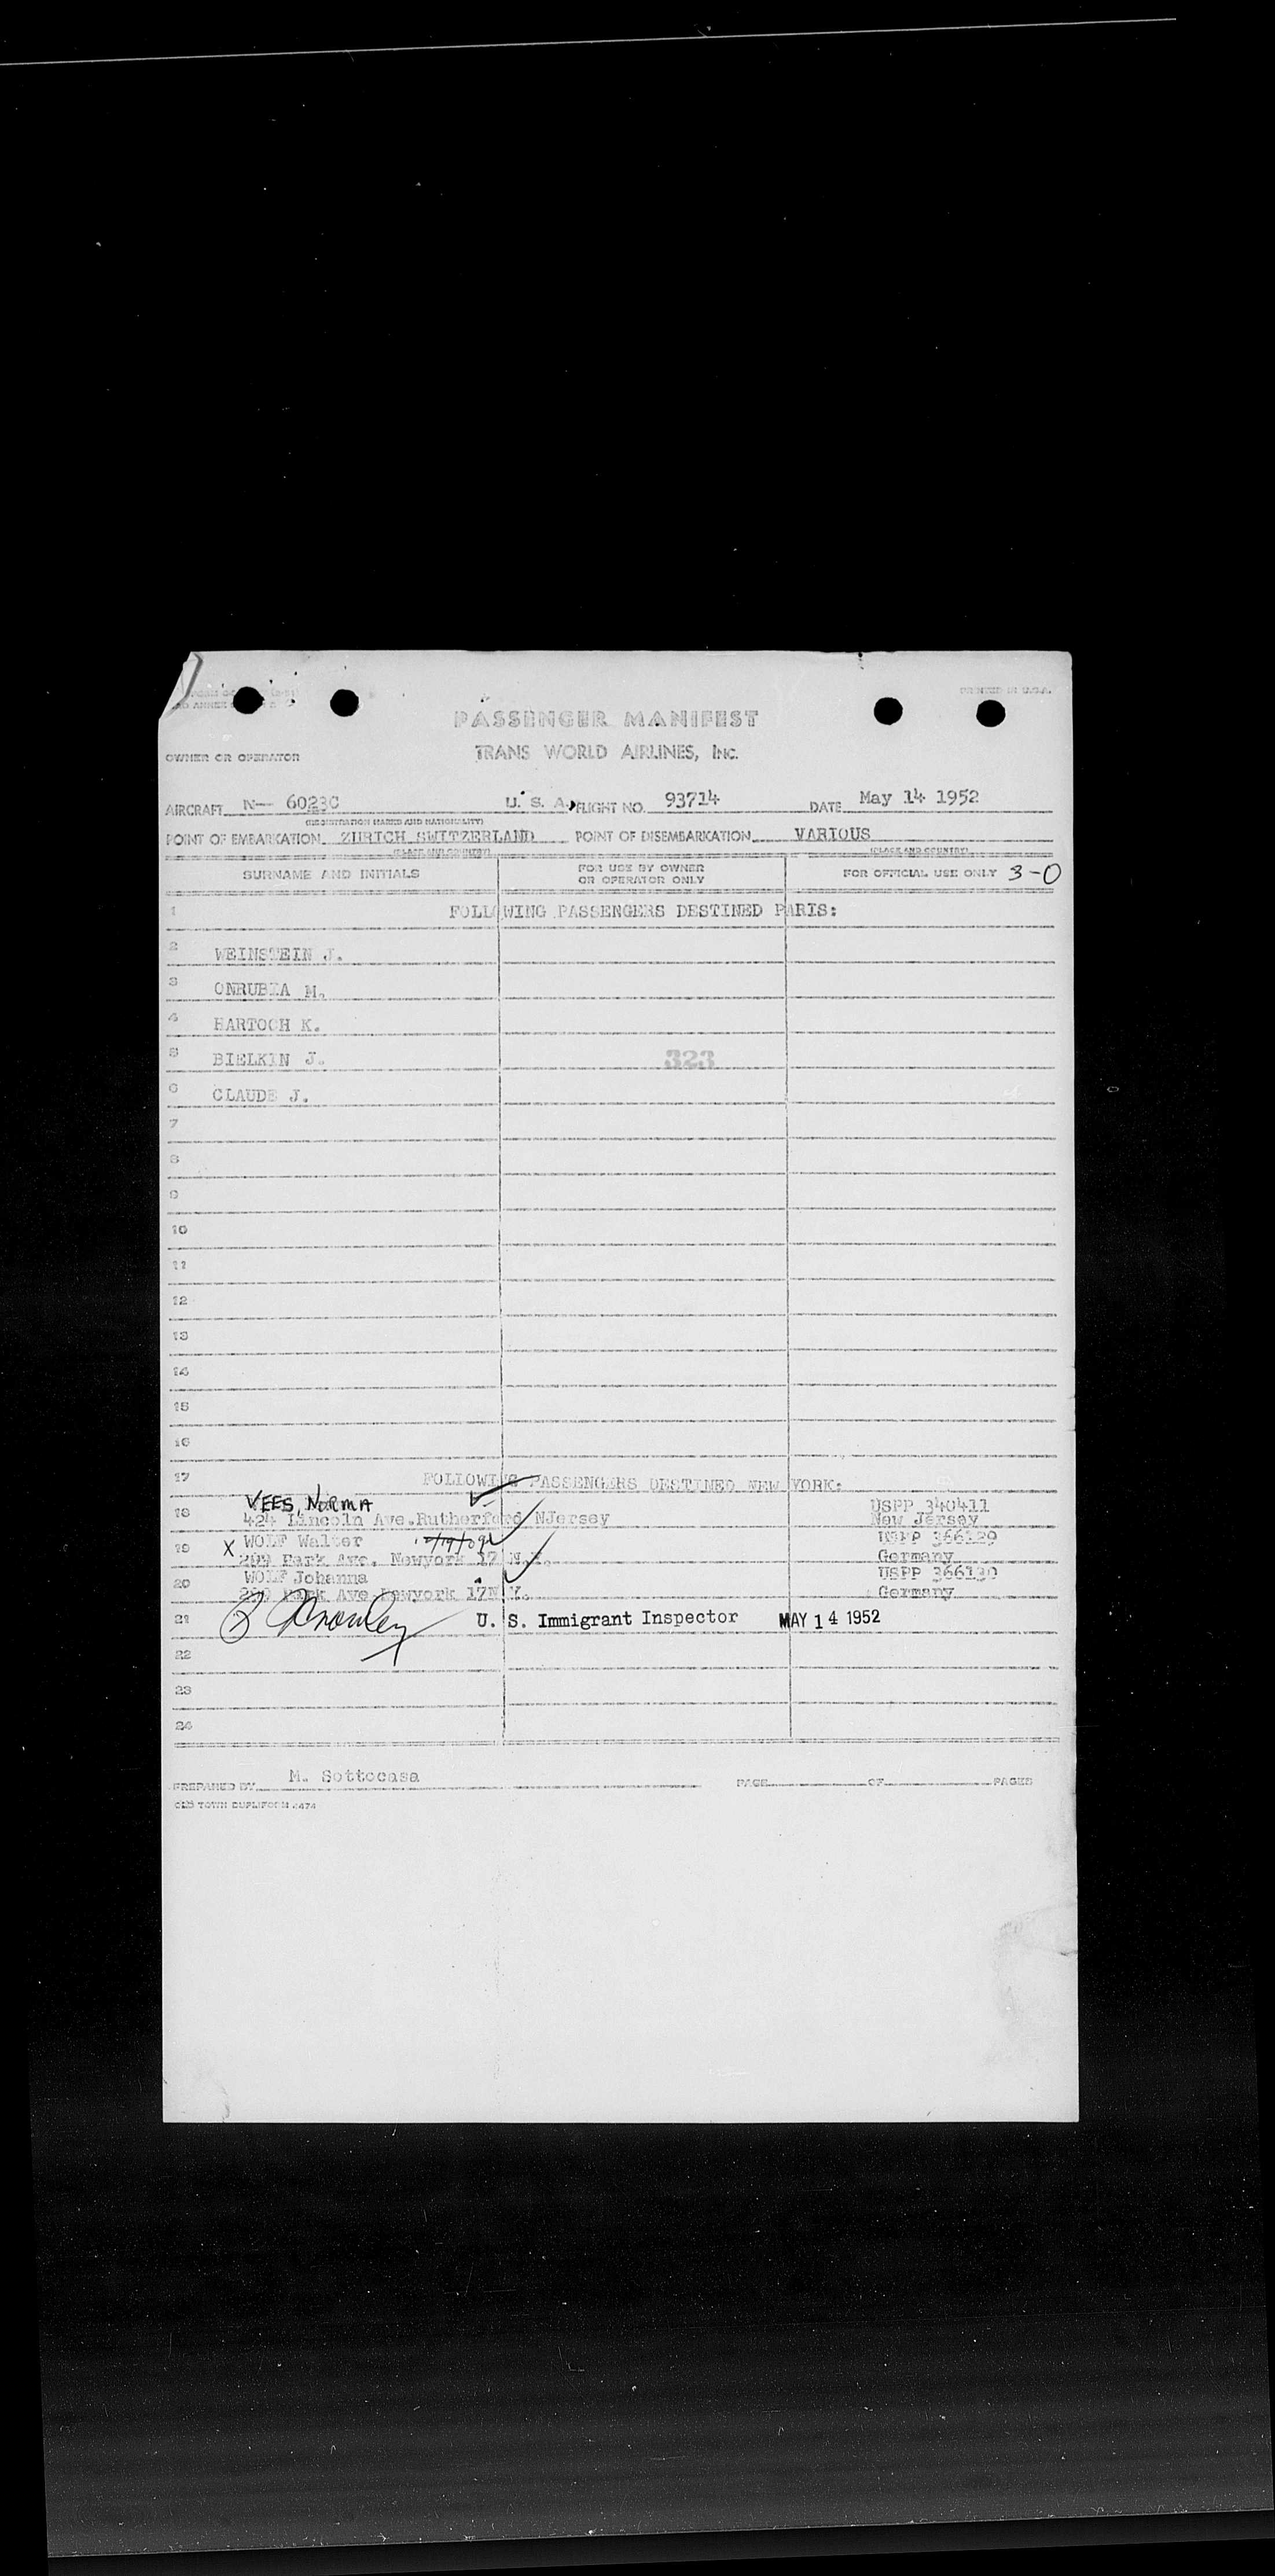 PRINTED IN U.S.A.
PASSENGER MANIFEST
OWNER OR OPERATOR TRANS WORLD AIRLINES, Inc.
AIRCRAFT N-- 6023C U. S. A. FLIGHT NO. 93714 DATE May 14 1952
(REGISTRATION MARKS AND NATIONALITY)
POINT OF EMBARKATION ZURICH SWITZERLAND POINT OF DISEMBARKATION VARIOUS
(PLACE AND COUNTRY) (PLACE AND COUNTRY)
SURNAME AND INITIALS FOR USE BY OWNER OR OPERATOR ONLY FOR OFFICIAL USE ONLY 3-0
1 FOLLOWING PASSENGERS DESTINED PARIS:
2 WEINSTEIN J.
3 ONRUBIA M.
4 HARTOCH K.
5 BIELKIN J. 323
6 CLAUDE J.
7
8
9
10
11
12
13
14
15
16
17 FOLLOWING PASSENGERS DESTINED NEW YORK:
VEES, NORMA USPP 340411
18 424 Lincoln Ave.Rutherford NJersey New Jersey
19 X WOLF Walter USPP 366129
Park Ave. Newyork 17 N.Y. Germany
20 WOLF Johanna USPP 366130
Park Ave Newyork 17N Y. Germany
21 U. S. Immigrant Inspector MAY 14 1952
22
23
24
PREPARED BY M. Sottocasa PAGE OF PAGES